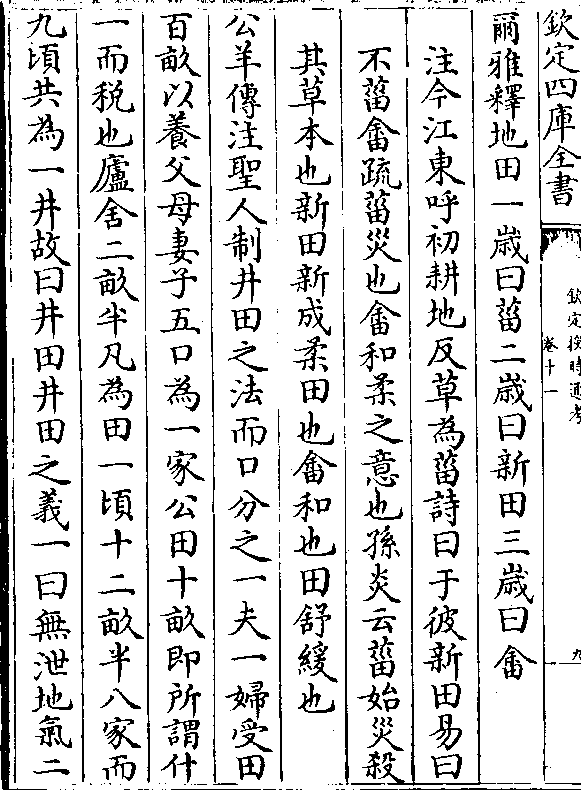 欽定四庫全書
欽定授時通考
卷十一
九
爾雅釋地田一歲曰菑二歲曰新田三歲曰畬
注今江東呼初耕地反草為菑詩曰于彼新田易曰
不菑畬疏菑災也畬和柔之意也孫炎云菑始災殺
其草木也新田新成柔田也畬和也田舒緩也
公羊傳注聖人制井田之法而口分之一夫一婦受田
百畝以養父母妻子五口為一家公田十畝即所謂什
一而税也廬舍二畝半凡為田一頃十二畝半八家而
九頃共為一井故曰井田井田之義一曰無泄地氣二